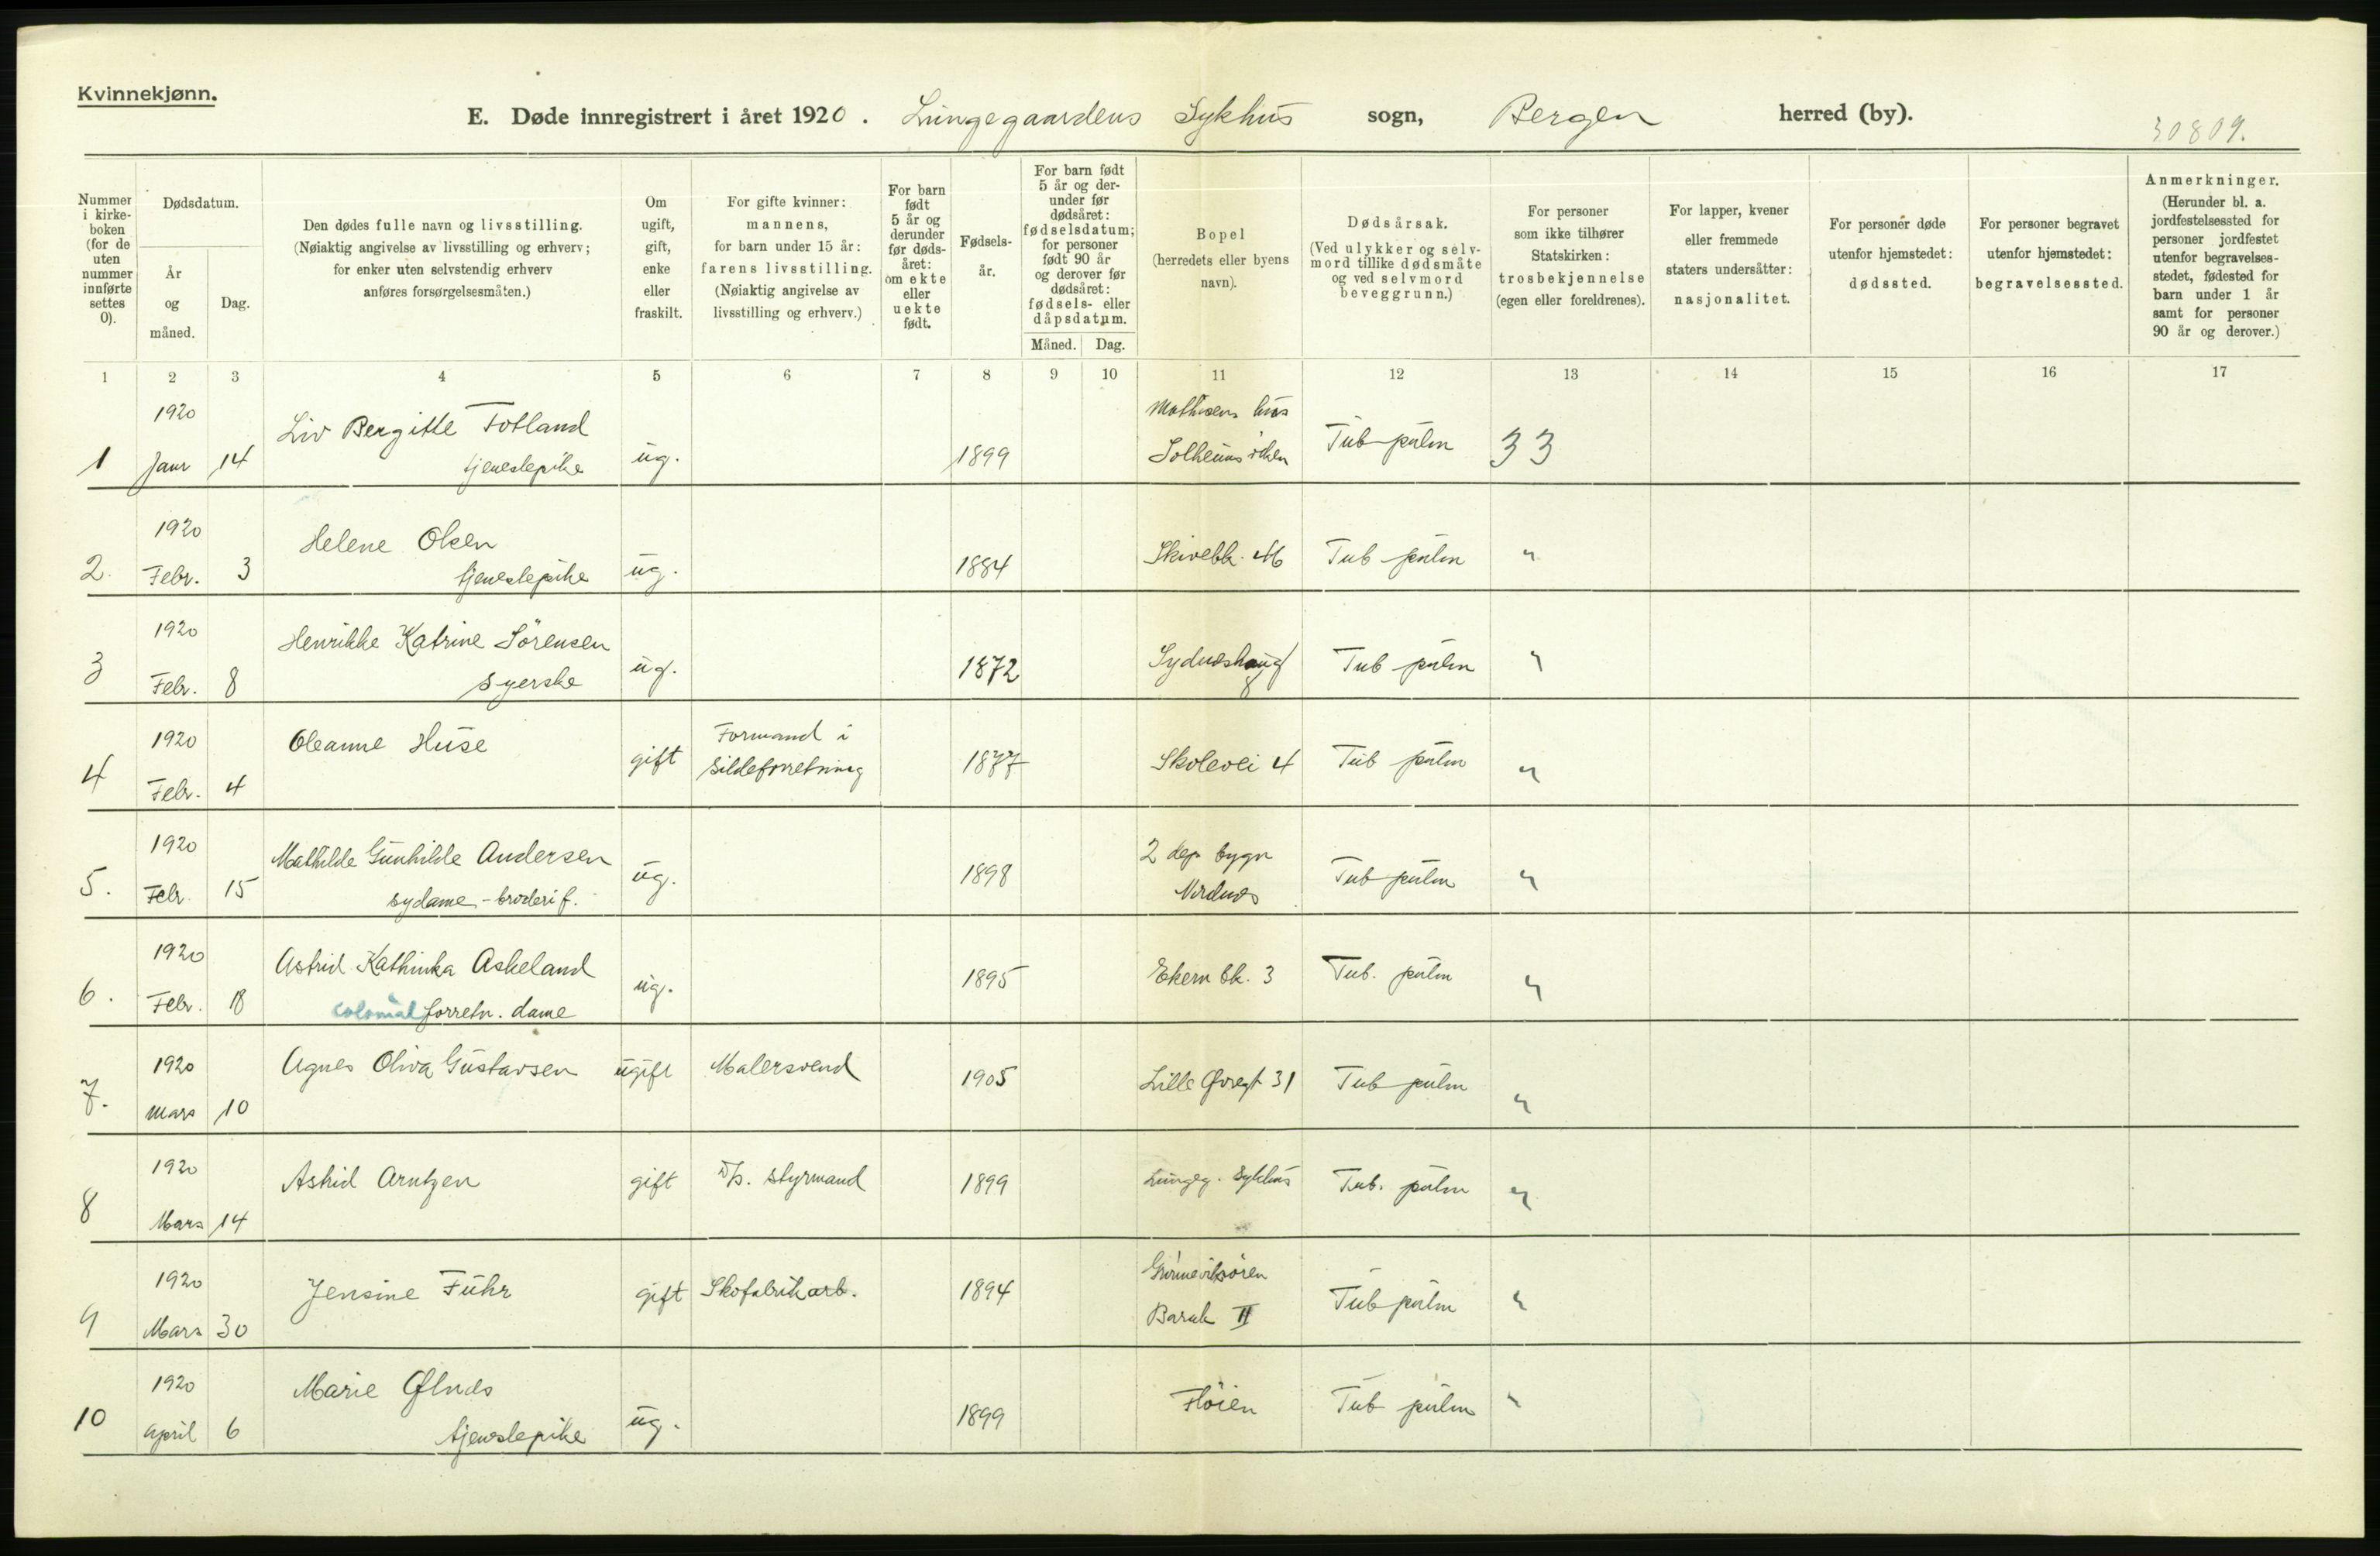 Kvinnekjønn.
E. Døde innregistrert i året 1920. Lungegaardens Sykhus sogn, Bergen herred (by).
30809.
Nummer i kirke-boken (for de uten nummer innførte settes 0).
Dødsdatum.
År og måned.
Dag.
Den dødes fulle navn og livsstilling.
(Nøiaktig angivelse av livsstilling og erhverv;
for enker uten selvstendig erhverv
anføres forsørgelsesmåten.)
Om ugift, gift, enke eller fraskilt.
For gifte kvinner: mannens,
for barn under 15 år:
farens livsstilling.
(Nøiaktig angivelse av
livsstilling og erhverv.)
For barn født 5 år og derunder før døds-året: om ekte eller uekte født.
Fødsels-år.
For barn født 5 år og der-under før dødsåret: fødselsdatum; for personer født 90 år og derover før dødsåret: fødsels- eller dåpsdatum.
Måned. Dag.
Bopel
(herredets eller byens
navn).
Dødsårsak.
(Ved ulykker og selv-
mord tillike dødsmåte
og ved selvmord
beveggrunn.)
For personer
som ikke tilhører
Statskirken:
trosbekjennelse
(egen eller foreldrenes).
For lapper, kvener
eller fremmede
staters undersåtter:
nasjonalitet.
For personer døde
utenfor hjemstedet:
dødssted.
For personer begravet
utenfor hjemstedet:
begravelsessted.
Anmerkninger.
(Herunder bl. a.
jordfestelsessted for
personer jordfestet
utenfor begravelses-
stedet, fødested for
barn under 1 år
samt for personer
90 år og derover.)
1 2 3 4 5 6 7 8 9 10 11 12 13 14 15 16 17
1920 Liv Bergitte Totland Mathisens hus
1 Janr 14 tjenestepike ug. 1899 Solheimsviken Tub pulm 33
1920 Helene Olsen
2. Febr. 3 tjenestepike ug. 1884 Skivebk. 46 Tub pulm "
1920 Henrikke Katrine Sörensen
3 Febr. 8 syerske ug. 1872 Sydneshaug 8 Tub pulm "
1920 Oleanne Huse Formand i
4 Febr. 4 gift sildeforretning 1877 Skolevei 4 Tub pulm "
1920 Mathilde Gunhilde Andersen 2 dep bygn
5. Febr 15 sydame - broderif. ug. 1898 Nordnes Tub pulm "
1920 Astrid Kathinka Askeland
6. Febr. 18 colonial forretn. dame ug. 1895 Ekern bk. 3 Tub. pulm "
1920 Agnes Oliva Gustavsen ugift Malersvend 1905 Lille Øvregt 31 Tub pulm
7. Mars 10 "
1920 Astrid Arntzen gift D/s. styrmand 1899 Lungeg. Sykhus Tub. pulm "
8 Mars 14
1920 Jensine Führ gift Skofabrikarb. 1894 Grönneviksören
9 Mars 30 Barak II Tub pulm "
1920 Marie Ølnes
10 April 6 tjenestepike ug. 1899 Flöien Tub pulm "